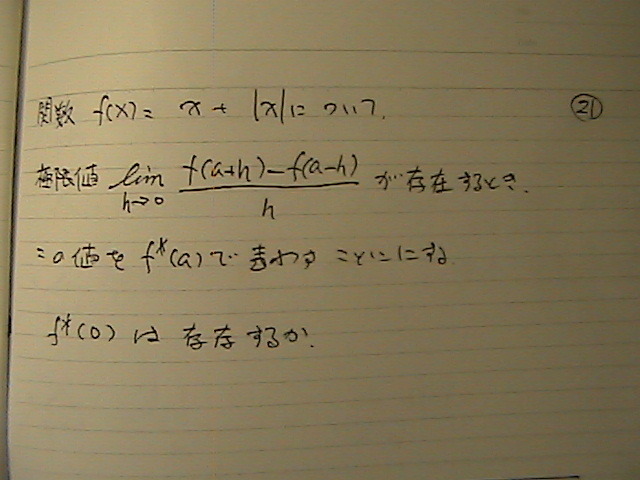 関数 f(x) = x + |x| について, ㉑
極限値 lim_{h→0} \frac{f(a+h)-f(a-h)}{h} が存在するとき.
この値を f*(a)で表わすことにする
f*(0) は 存在するか.